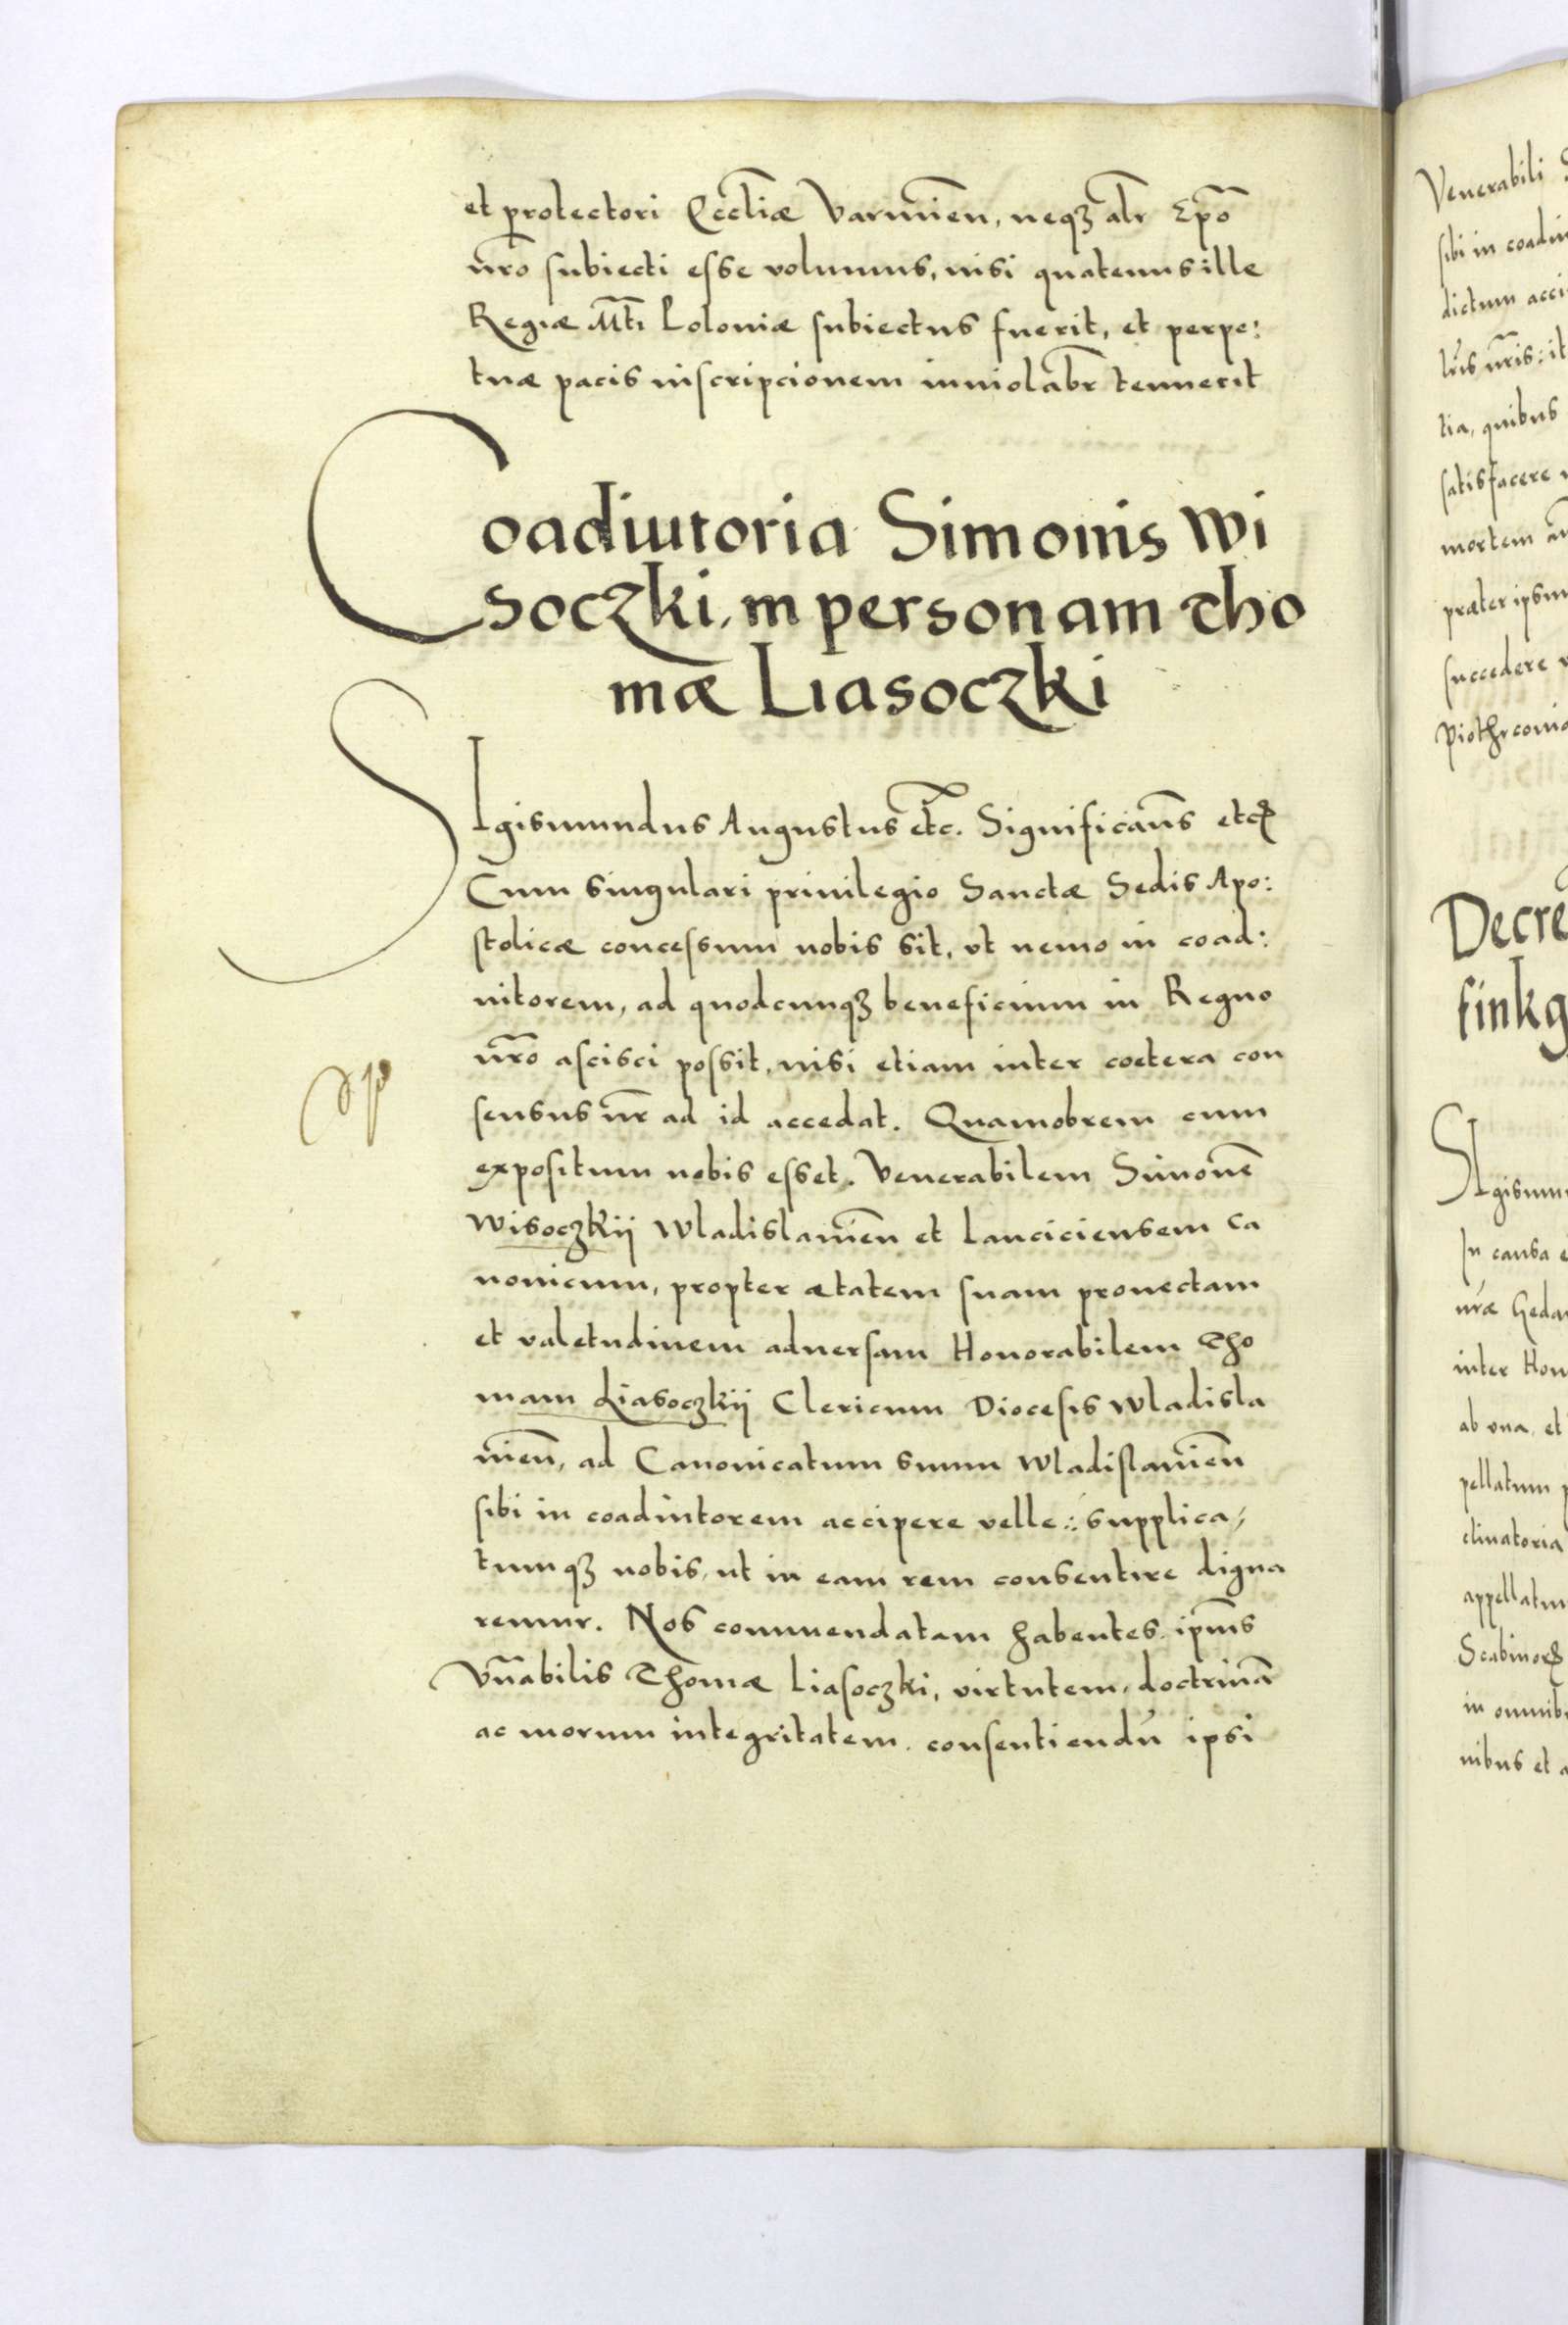 et protectori Eccłiæ Varmień, neqꝫ alr Epō
nr̄o subiecti esse volumus, nisi quatenus ille
Regiæ Mti Poloniæ subiectus fuerit, et perpe:
tuæ pacis inscripcionem inuiolabr tenuerit
Coadiutoria Simonis Wi
soczki, in personam Tho
mæ Liasoczki
SIgismundus Augustus etc. Significam̄s etcꝭ
Cum singulari priuilegio Sanctæ Sedis Apo:
stolicæ concessum nobis sit, vt nemo in coad:
iutorem, ad quodcunqꝫ beneficium in Regno
nr̄o ascisci possit, nisi etiam inter coetera con
sensus nr̄ ad id accedat. Quamobrem cum
expositum nobis esset. Venerabilem Simonē
Wisoczkij Wladislauień et Lanciciensem Ca
nonicum, propter ætatem suam prouectam
et valetudinem aduersam Honorabilem Tho
mam Liasoczkij Clericum Diocesis Wladisla
uień, ad Canonicatum suum Wladislauień
sibi in coadiutorem accipere velle: supplica,
tumqꝫ nobis, ut in eam rem consentire digna
remur. Nos commendatam habentes ipīus
Vn̄abilis Thomæ Liasoczki, virtutem, doctrinā
ac morum integritatem, consentiendū ipsi
Venerabili
sibi in coadiu
dictum acci
lr̄is nr̄is: it
tia, quibus
satisfacere
mortem
præter ipsum
succedere
Piothrconia
Decre
finkg
SIgismu
In causa
nr̄æ Geda
inter Hon
ab vna, et
pellatum
clinatoria
appellatu
Scabinorꝭ
in omnib
nibus et a